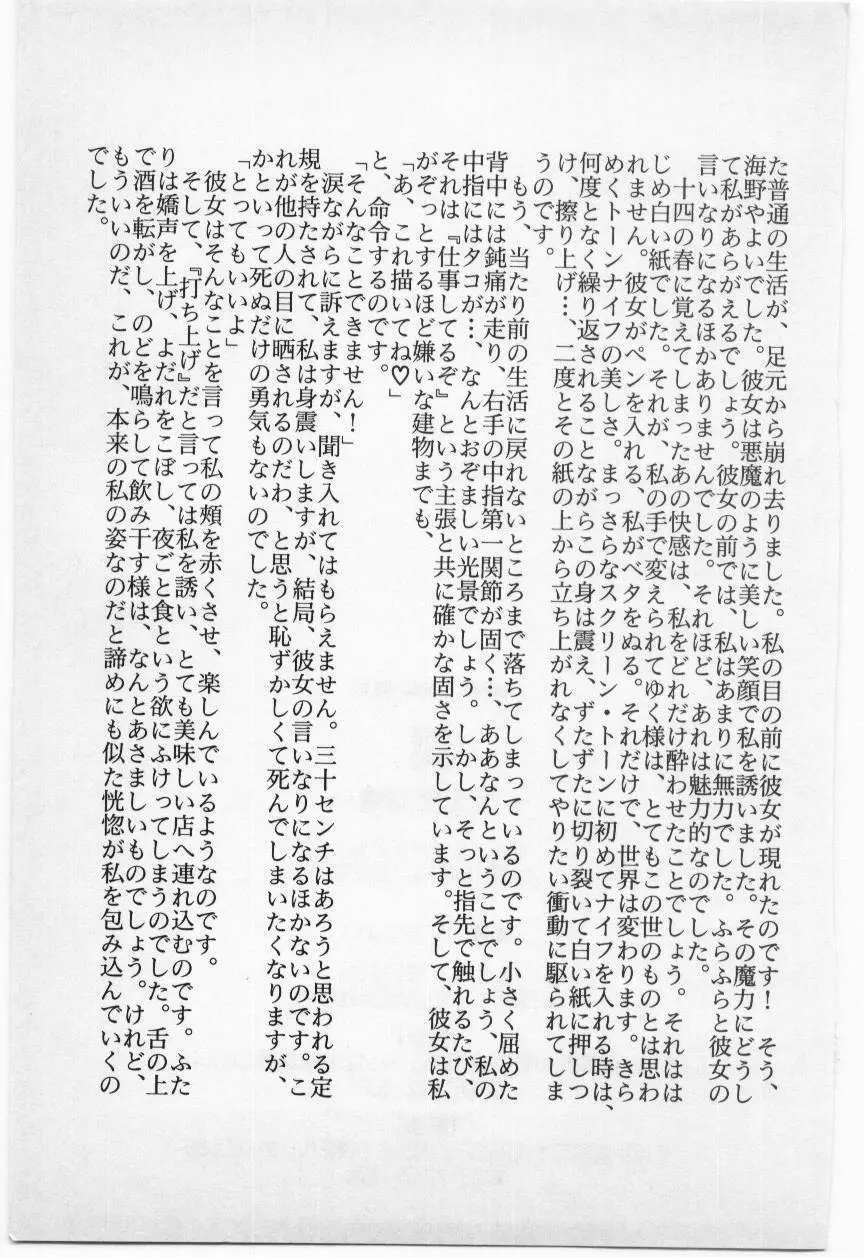 た普通の生活が、足元から崩れ去りました。私の目の前に彼女が現れたのです！　そう、
海野やよいでした。彼女は悪魔のように美しい笑顔で私を誘いました。その魔力にどうし
て私があらがえるでしょう。彼女の前では、私はあまりに無力でした。ふらふらと彼女の
言いなりになるほかありませんでした。それほど、あれは魅力的なのでした。
　十四の春に覚えてしまったあの快感は、私をどれだけ酔わせたことでしょう。それはは
じめ白い紙でした。それが、私の手で変えられてゆく様は、とてもこの世のものとは思わ
れません。彼女がペンを入れる、私がベタをぬる。それだけで、世界は変わります。きら
めくトーンナイフの美しさ。まっさらなスクリーン・トーンに初めてナイフを入れる時は、
何度となく繰り返されることながらこの身は震え、ずたずたに切り裂いて白い紙に押しつ
け、擦り上げ…、二度とその紙の上から立ち上がれなくしてやりたい衝動に駆られてしま
うのです。
　もう、当たり前の生活に戻れないところまで落ちてしまっているのです。小さく屈めた
背中には鈍痛が走り、右手の中指第一関節が固く…、ああなんということでしょう、私の
中指にはタコが…、なんとおぞましい光景でしょう。しかし、そっと指先で触れるたび、
それは『仕事してるぞ』という主張と共に確かな固さを示しています。そして、彼女は私
がぞっとするほど嫌いな建物までも、
「あ、これ描いてね♡」
と、命令するのです。
「そんなことできません！」
　涙ながらに訴えますが、聞き入れてはもらえません。三十センチはあろうと思われる定
規を持たされて、私は身震いしますが、結局、彼女の言いなりになるほかないのです。こ
れが他の人の目に晒されるのだわ、と思うと恥ずかしくて死んでしまいたくなりますが、
かといって死ぬだけの勇気もないのでした。
「とってもいいよ」
　彼女はそんなことを言って私の頬を赤くさせ、楽しんでいるようなのです。
　そして、『打ち上げ』だと言っては私を誘い、とても美味しい店へ連れ込むのです。ふた
りは嬌声を上げ、よだれをこぼし、夜ごと食という欲にふけってしまうのでした。舌の上
で酒を転がし、のどを鳴らして飲み干す様は、なんとあさましいものでしょう。けれど、
もういいのだ、これが、本来の私の姿なのだと諦めにも似た恍惚が私を包み込んでいくの
でした。